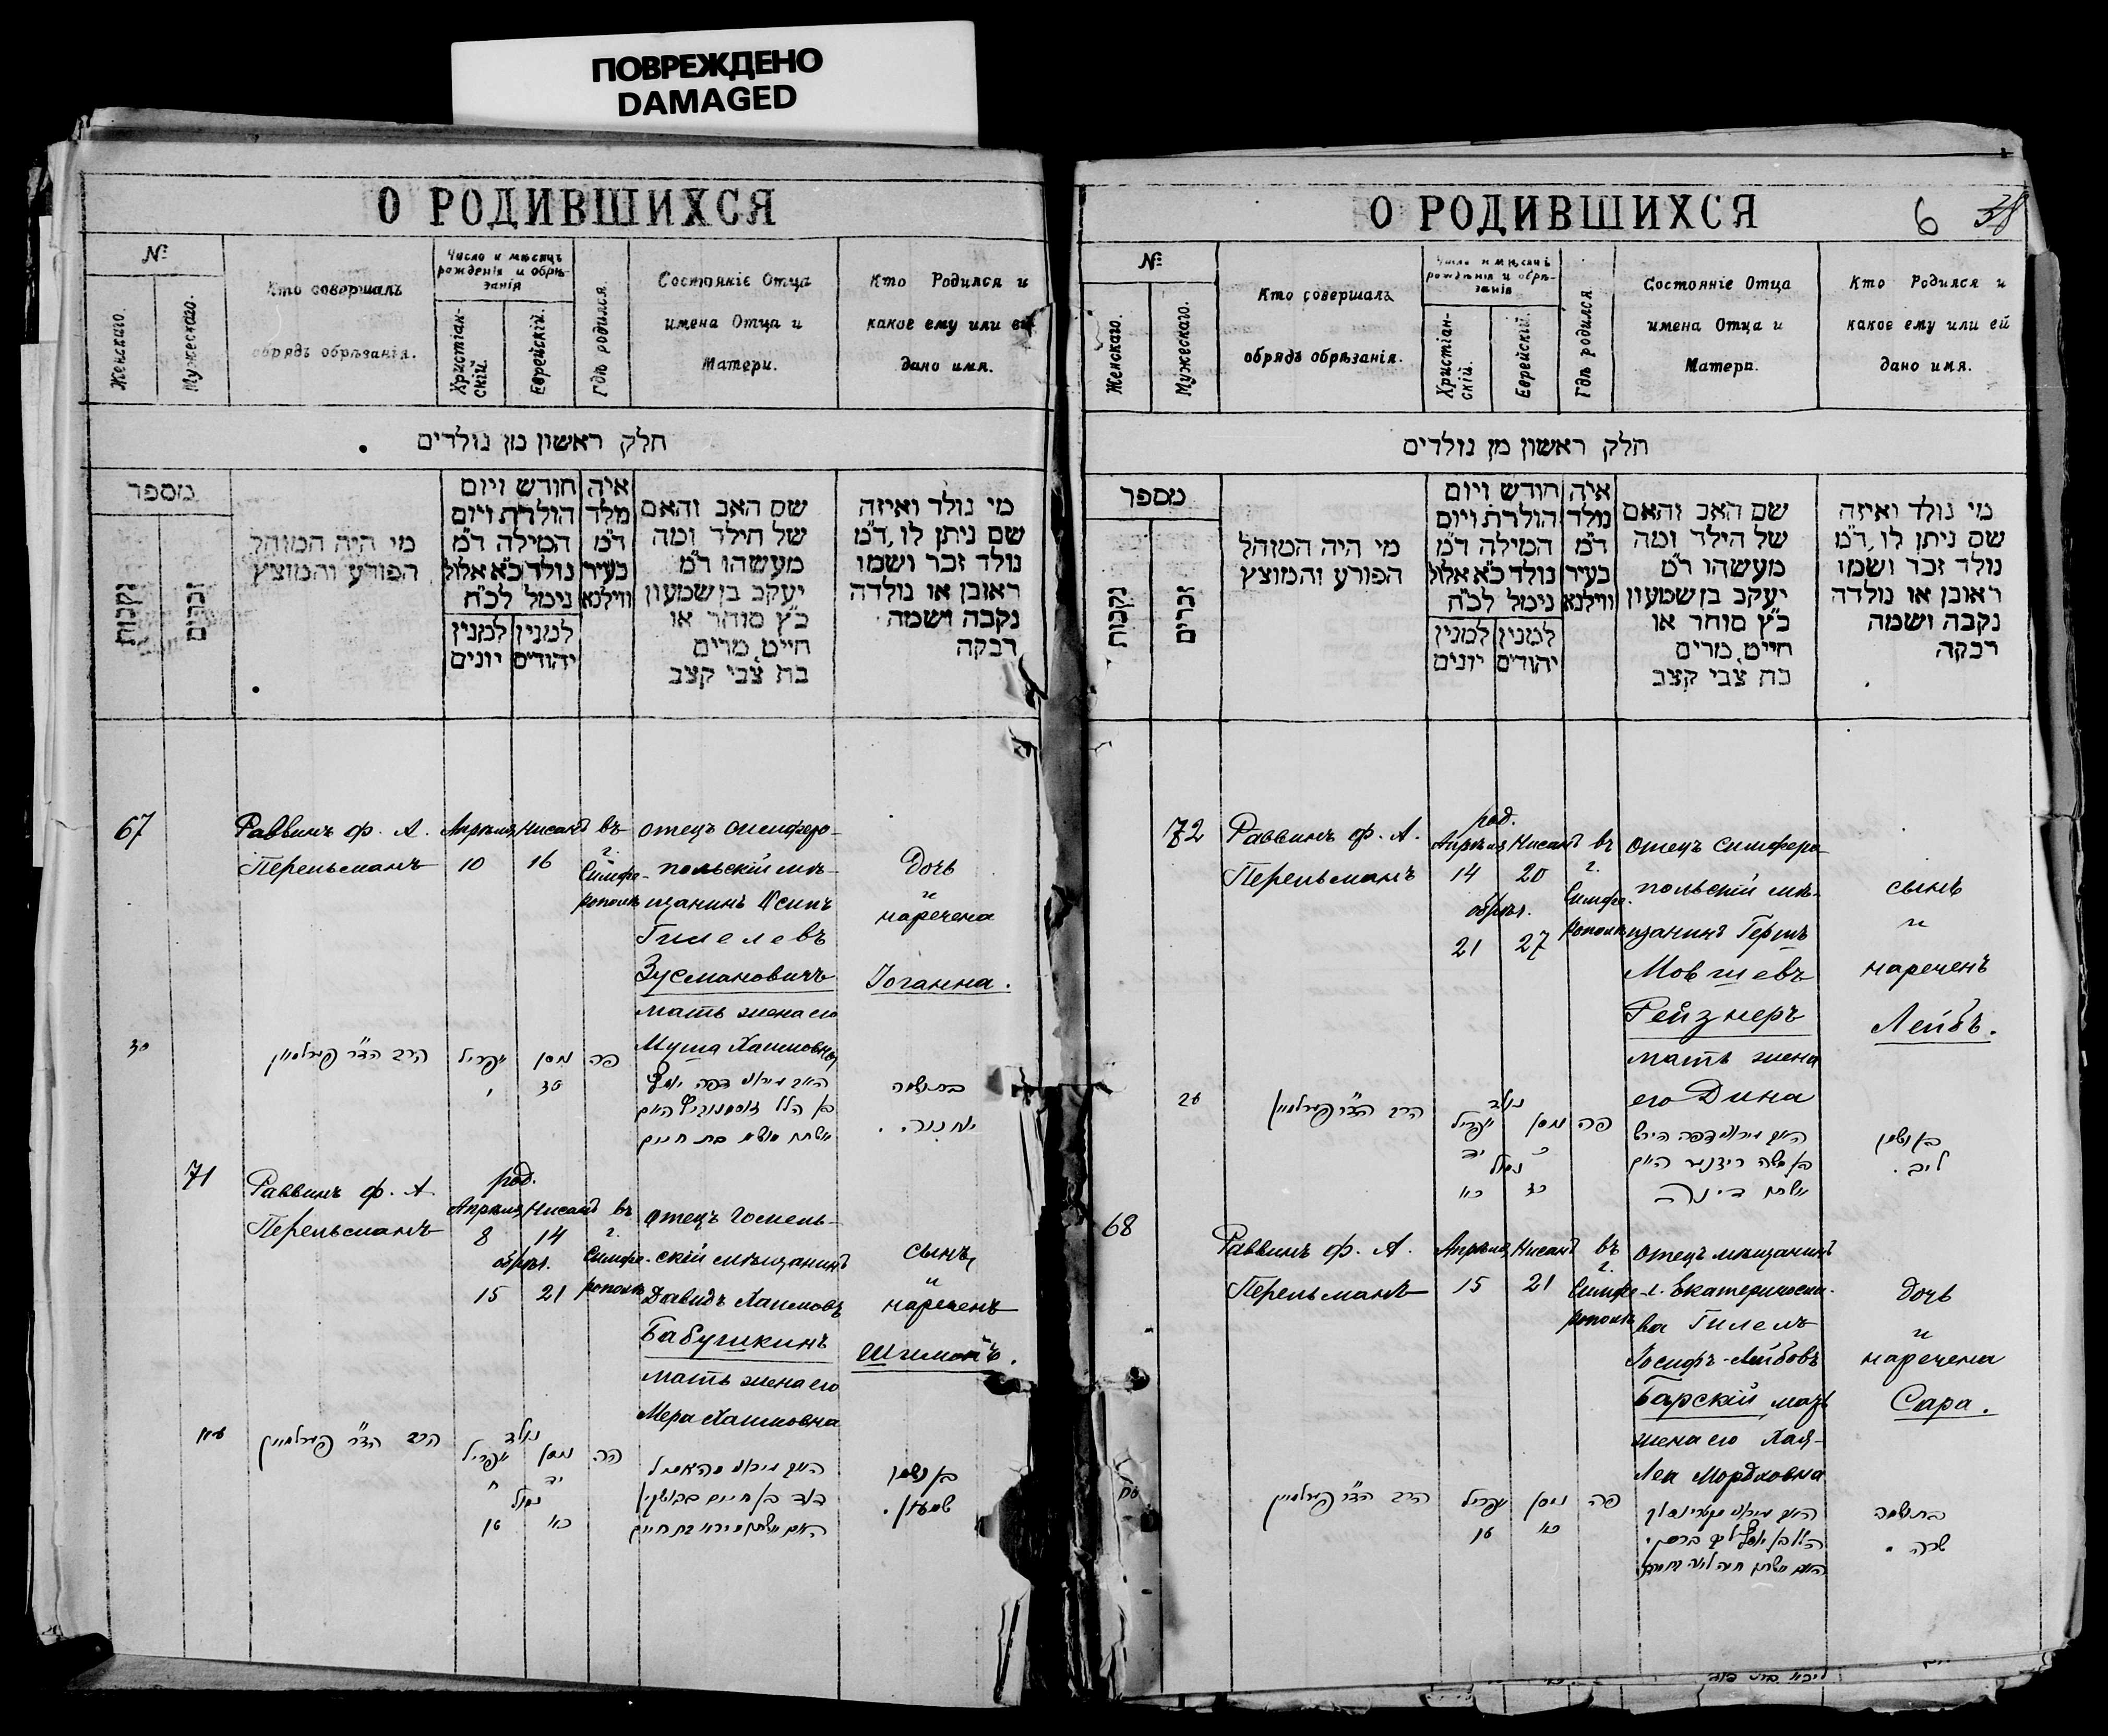 ПОВРЕЖДЕНО
DAMAGED
О РОДИВШИХСЯ
№
Женскаго.
Мужескаго.
Кто совершалъ
обрядъ обрѣзанія.
Число и мѣсяцъ
рожденія и обрѣ-
занія
Христіан-
скій.
Еврейскій.
Гдѣ родился.
Состояніе Отца
имена Отца и
Матери.
Кто Родился и
какое ему или ей
дано имя.
חלק ראשון מן נולדים
מספר
נקבות
זכרים
מי היה המוהל
הפורע והמוצץ
חודש ויום
הולדת ויום
המילה ד״מ
נולד כ״א אלול
נימל לכ״ח
למנין למנין
יהודים יונים
איה
מלד
ד״מ
בעיר
ווילנא
שם האב והאם
של הילד ומה
מעשהו ד״מ
יעקב בן שמעון
כ״ץ סוחר או
חייט מרים
בת צבי קצב
מי נולד ואיזה
שם ניתן לו, ד״מ
נולד זכר ושמו
ראובן או נולדה
נקבה ושמה
רבקה
67
Раввинъ Ф. А.
Перельманъ
Апрѣля
10
Нисанъ
16
въ
г.
Симфе-
рополѣ
отецъ симферо-
польскій мѣ-
щанинъ Осипъ
Гилелевъ
Зусмановичъ
мать жена его
Муша Хаимовна
Дочь
и
наречена
Іоганна.
הרב הד״ר פערלמאן
אפריל
י
ניסן
טז
פה
בן הלל זוסמנוביץ האם
אשתו מושא בת חיים
71
Раввинъ Ф. А.
Перельманъ
род.
Апрѣля Нисанъ
8 14
обрѣз.
15 21
въ
г.
Симфе-
рополѣ
отецъ Гомель-
скій мѣщанинъ
Давидъ Хаимовъ
Бабушкинъ
мать жена его
Мера Хаимовна
сынъ
и
нареченъ
Шимонъ.
הרב הד״ר פערלמאן
נולד
אפריל ניסן
ח יד
נמול
טו כא
פה
דוד בן חיים באבושקין
האם אשתו מירא בת חיים
שמעון.
О РОДИВШИХСЯ
6
38
№
Женскаго.
Мужескаго.
Кто совершалъ
обрядъ обрѣзанія.
Число и мѣсяцъ
рожденія и обрѣ-
занія
Христіан-
скій.
Еврейскій.
Гдѣ родился
Состояніе Отца
имена Отца и
Матери.
Кто Родился и
какое ему или ей
дано имя.
חלק ראשון מן נולדים
מספר
נקבות
זכרים
מי היה המוהל
הפורע והמוצץ
חודש ויום
הולדת ויום
המילה ד״מ
נולד כ״א אלול
נימל לכ״ח
למנין למנין
יהודים יונים
איה
מלד
ד״מ
בעיר
ווילנא
שם האב והאם
של הילד ומה
מעשהו ד״מ
יעקב בן שמעון
כ״ץ סוחר או
חייט מרים
בת צבי קצב
מי נולד ואיזה
שם ניתן לו, ד״מ
נולד זכר ושמו
ראובן או נולדה
נקבה ושמה
רבקה
72
Раввинъ Ф. А.
Перельманъ
род.
Апрѣля Нисанъ
14 20
обрѣз.
21 27
въ
г.
Симфе-
рополѣ
отецъ симферо-
польскій мѣ-
щанинъ Гершъ
Мовшевъ
Рейзнеръ
мать жена
его Дина
сынъ
и
нареченъ
Лейбъ.
הרב הד״ר פערלמאן
נולד
אפריל ניסן
יד כ
נמול
כא כז
פה
בן משה רייזנער האם
אשתו דינה
ליב.
68
Раввинъ Ф. А.
Перельманъ
Апрѣля
15
Нисанъ
21
въ
г.
Симфе-
рополѣ
отецъ мѣщанинъ
г. Екатериносла-
ва Гилель
Іосифъ-Лейбовъ
Барскій, мать
жена его Хая-
Лея Мордховна
дочь
и
наречена
Сара.
סח
הרב הד״ר פערלמאן
אפריל
טו
ניסן
כא
פה
שרה.